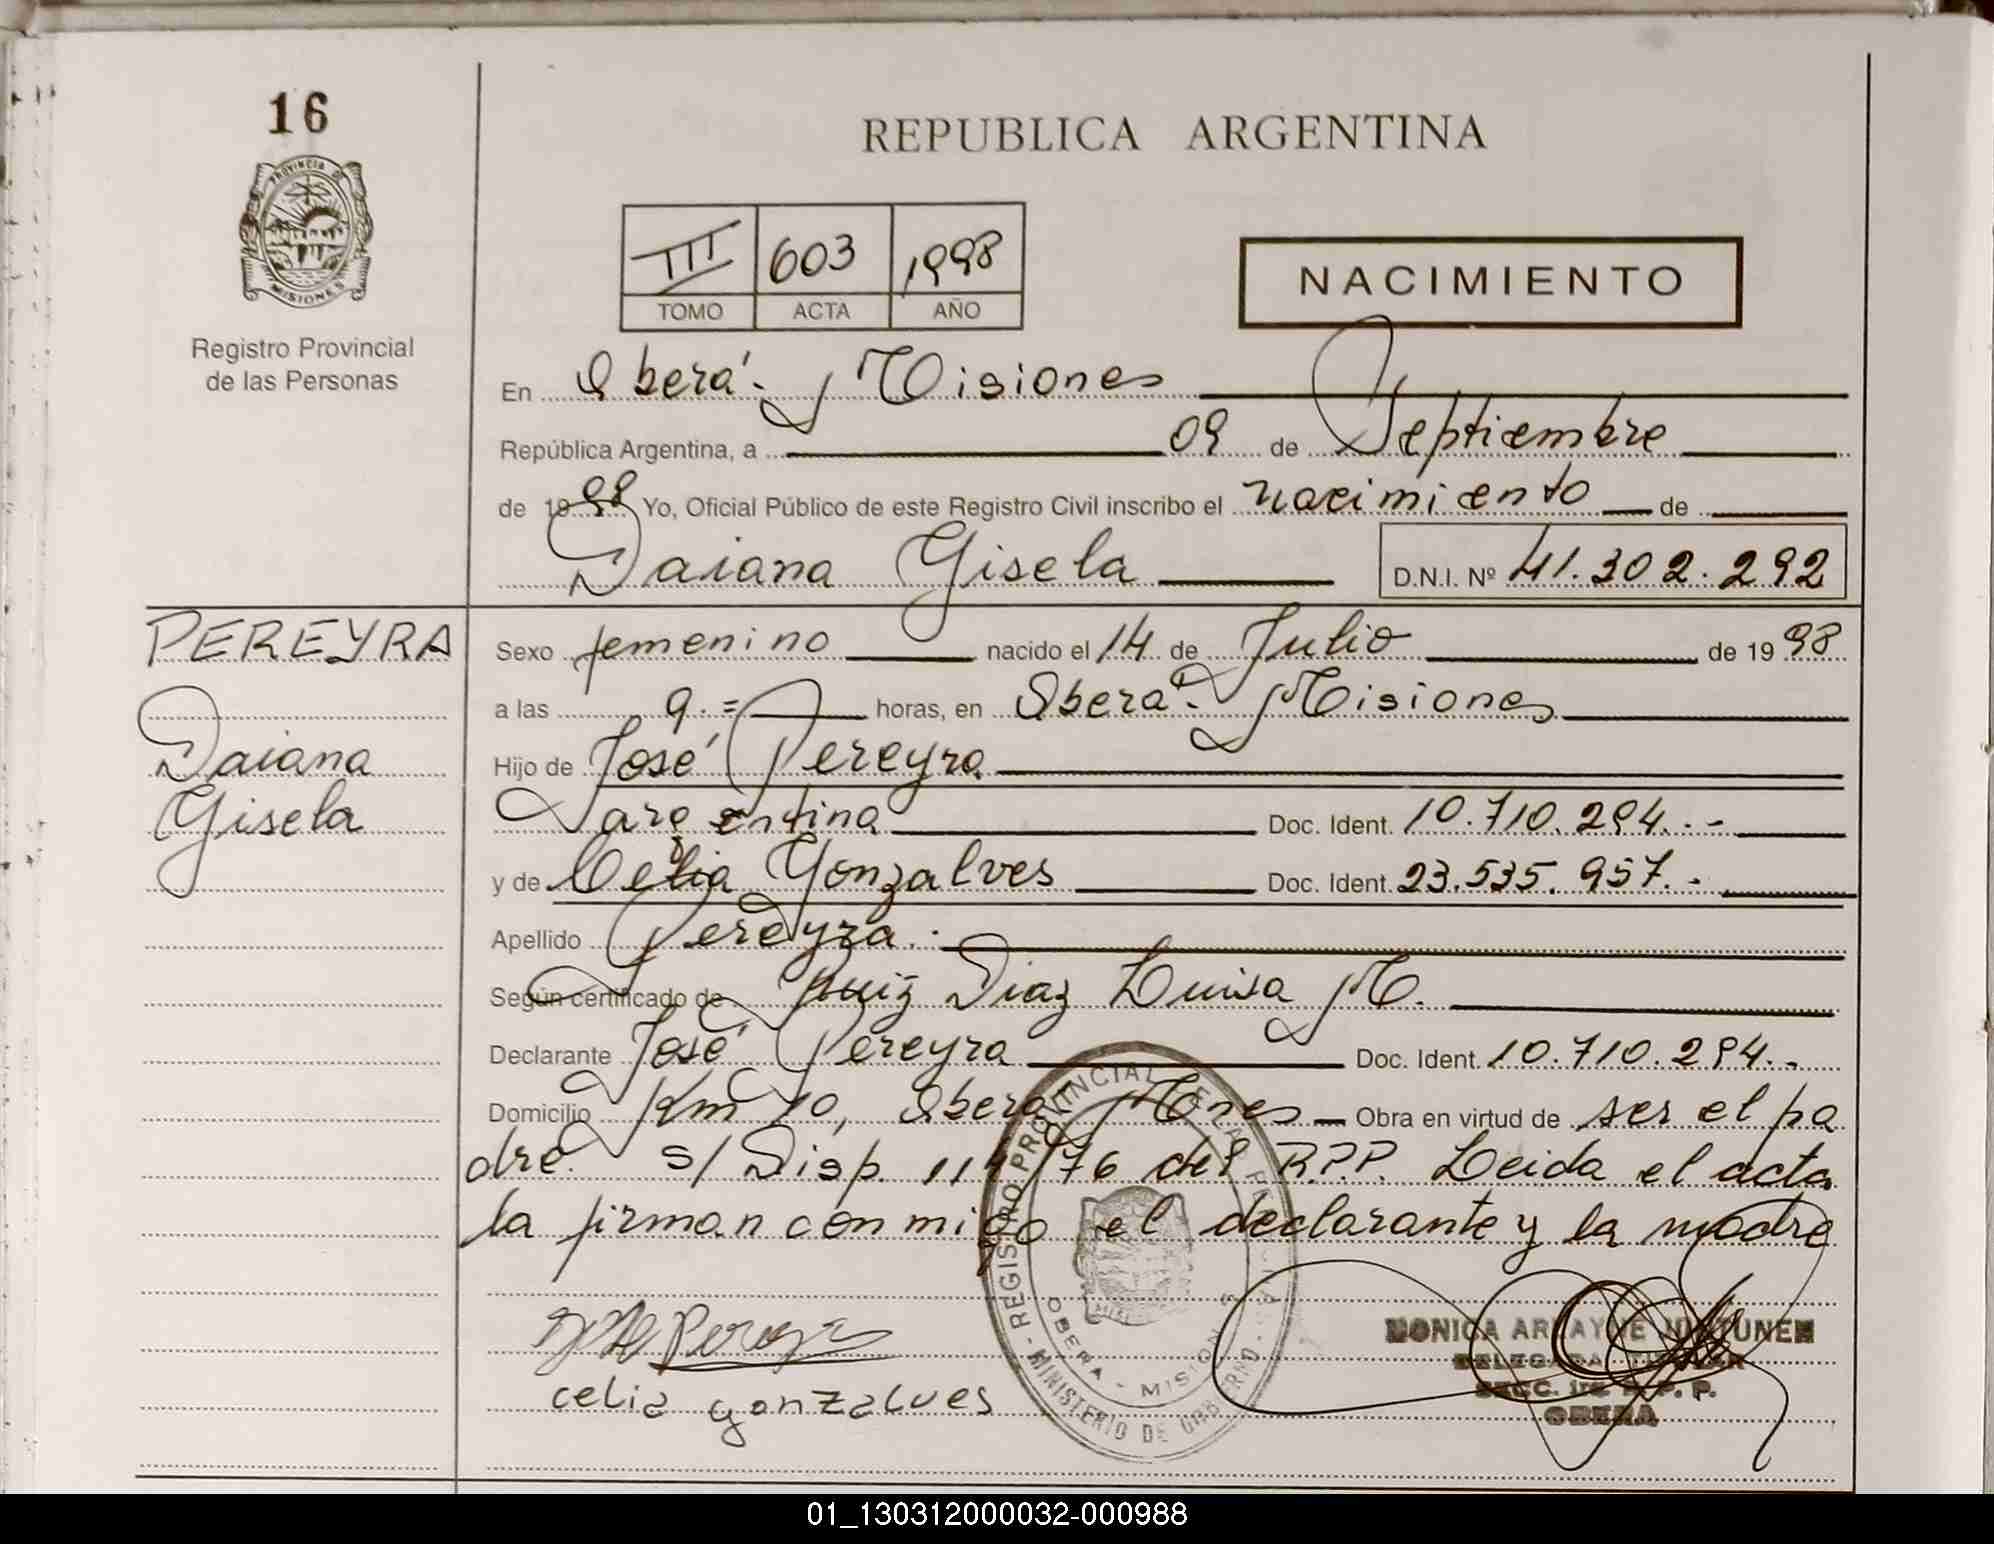 16
REPUBLICA ARGENTINA
PROVINCIA DE
MISIONES
Registro Provincial
de las Personas
III 603 1998
TOMO ACTA AÑO
NACIMIENTO
En Oberá - Misiones
República Argentina, a 09 de Septiembre
de 1998 Yo, Oficial Público de este Registro Civil inscribo el nacimiento de
Daiana Gisela D.N.I. Nº 41.302.292
PEREYRA
Daiana
Gisela
Sexo femenino nacido el 14 de Julio de 1998
a las 9.= horas, en Oberá - Misiones
Hijo de José Pereyra
argentina Doc. Ident. 10.710.294.-
y de Celia Gonzalves Doc. Ident. 23.535.957.-
Apellido Pereyra.-
Según certificado de Ruiz Diaz Luisa M.
Declarante José Pereyra Doc. Ident. 10.710.294.-
Domicilio Km 10, Oberá Mones Obra en virtud de ser el pa
dre. s/ Disp. 114/76 del R.P.P. Leida el acta
la firman conmigo el declarante y la madre
José Pereyra
celia gonzalves
REGISTRO PROVINCIAL DE LAS PERSONAS
MINISTERIO DE GOBIERNO
OBERA - MISIONES
MONICA
DELEGADA TITULAR
SECC. 1ra R.P.P.
OBERA
01_130312000032-000988